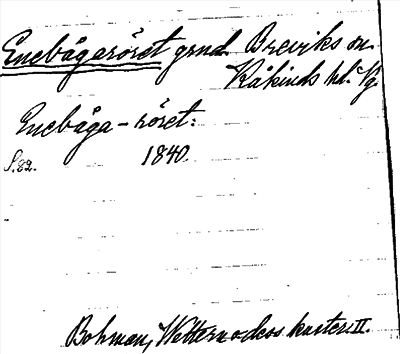 Enebågaröret grnd Breviks sn.
Kåkinds hd. Vg.
Enebåga-röret:
S. 82. 1840.
Bohman, Wettern o dess kuster II.